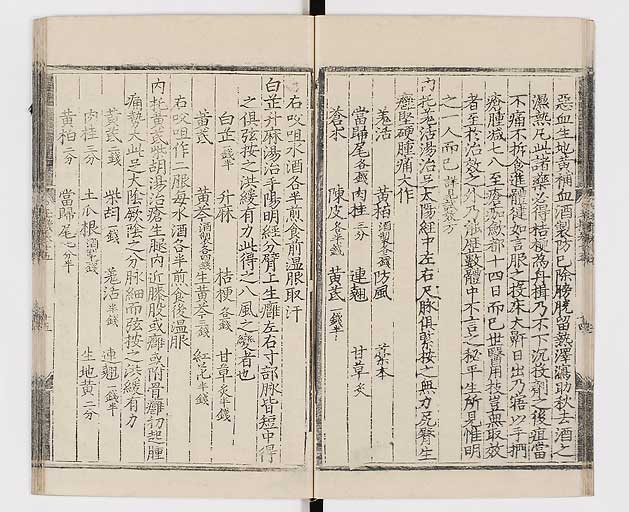 惡血生地黃補血酒製防已除膀胱留熱澤瀉助秋去酒之
濕熱凡此諸藥必得桔梗為舟楫乃不下沉投劑之後疽當
不痛不拆食進體健如言服之投床大鼾日出乃寤以手捫
瘡腫減七八至瘡痂斂都十四日而已世醫用技豈無取效
者至於治效之外乃能歷數體中不言之秘平生所見惟明
之一人而已
內托羌活湯治足太陽經中左右尺脉俱緊按之無力尻臀生
癰堅硬腫痛大作
羌活 黃栢 防風 藁本
當歸尾 肉桂三分 連翹 甘草炙
蒼朮 陳皮 黃芪
右㕮咀水酒各半煎食前温服取汗
白芷升麻湯治手陽明經分臂上生癰左右寸部脉皆短中得
之俱弦按之洪緩有力此得之八風之變者也
白芷 升麻 桔梗 甘草
黃芪 黃芩 生黃芩 紅花半錢
右㕮咀作二服每水酒各半煎食後温服
內托黃芪柴胡湯治瘡生腿內近膝股或癰或附骨癰初起腫
痛勢大此足太陰厥陰之分脉細而弦按之洪緩有力
黃芪二錢 柴胡一錢 羌活半錢 連翹一錢半
肉桂三分 土瓜根酒製一錢 生地黃二分
黃栢二分 當歸尾七分半